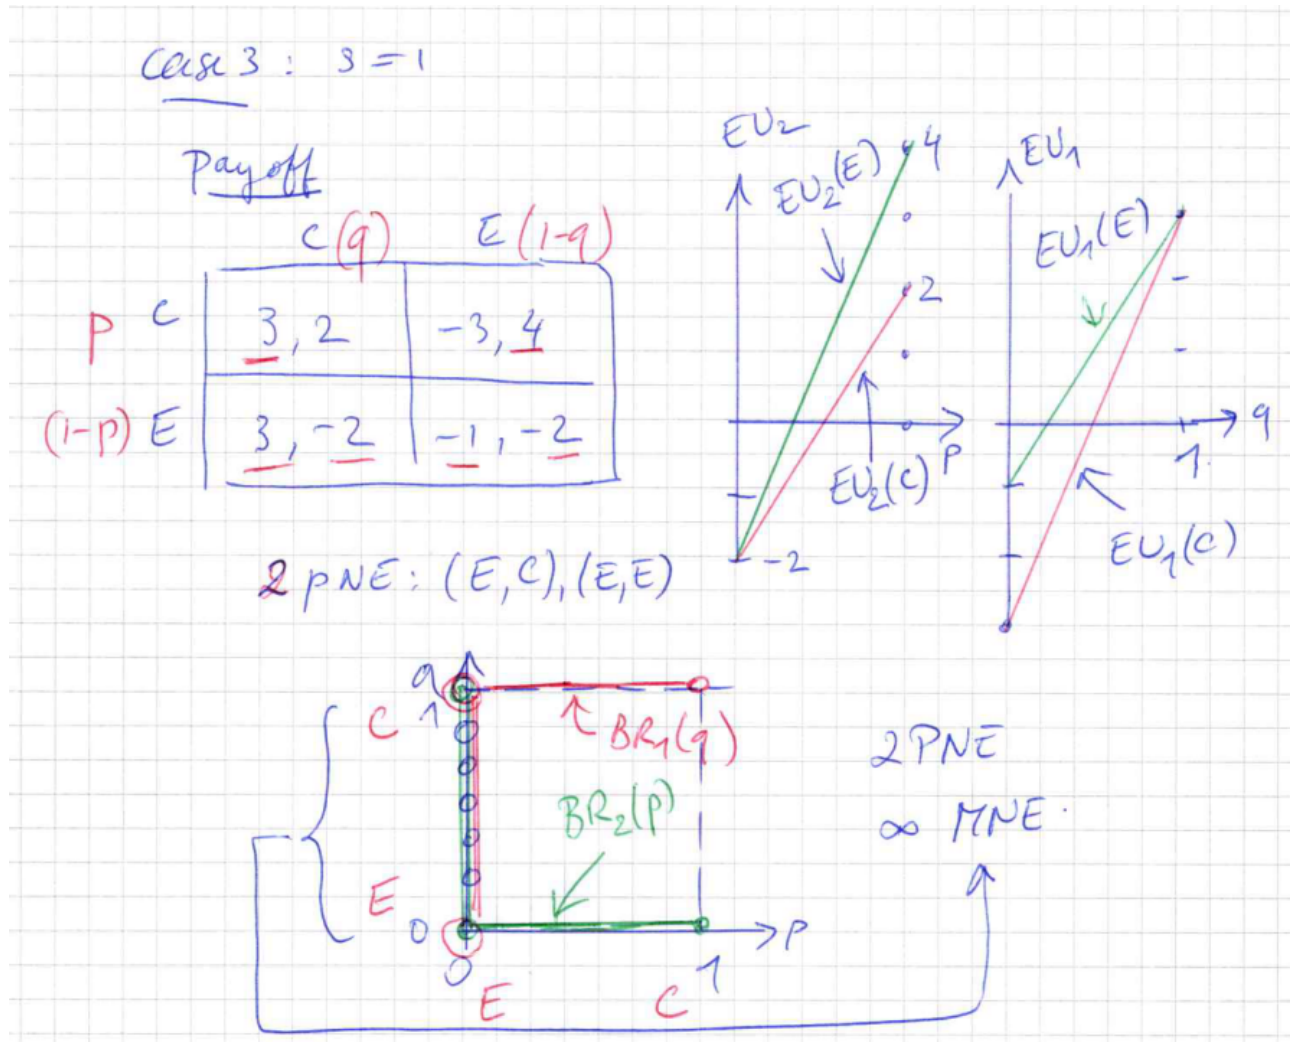 Case 3 : s = 1
Payoff
C (q) E (1-q)
p C 3, 2 -3, 4
(1-p) E 3, -2 -1, -2
2 pNE: (E, C), (E, E)
EU₂
EU₂(E)
4
2
p
EU₂(C)
-2
EU₁
EU₁(E)
q
1
EU₁(C)
q
1
C
BR₁(q)
BR₂(p)
E
0
p
0
1
E C
2PNE
∞ MNE.